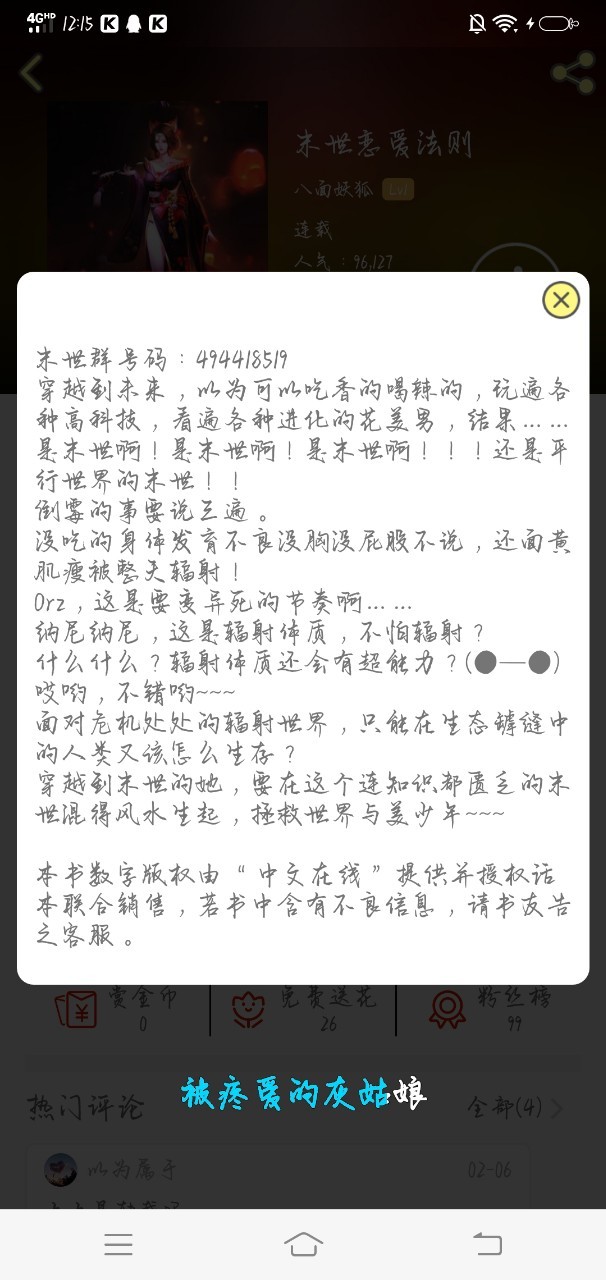 4G HD 12:15
末世恋爱法则
八面妖狐 Lv1
连载
人气：96,127
末世群号码：494418519
穿越到未来，以为可以吃香的喝辣的，玩遍各
种高科技，看遍各种进化的花美男，结果……
是末世啊！是末世啊！是末世啊！！！还是平
行世界的末世！！
倒霉的事要说三遍。
没吃的身体发育不良没胸没屁股不说，还面黄
肌瘦被整天辐射！
Orz，这是要变异死的节奏啊……
纳尼纳尼，这是辐射体质，不怕辐射？
什么什么？辐射体质还会有超能力？(●—●)
哎哟，不错哟~~~
面对危机处处的辐射世界，只能在生态罅缝中
的人类又该怎么生存？
穿越到末世的她，要在这个连知识都匮乏的末
世混得风水生起，拯救世界与美少年~~~
本书数字版权由“中文在线”提供并授权话
本联合销售，若书中含有不良信息，请书友告
之客服。
赏金币 免费送花 粉丝榜
0 26 99
被疼爱的灰姑娘
热门评论 全部(4)
以为属于 02-06